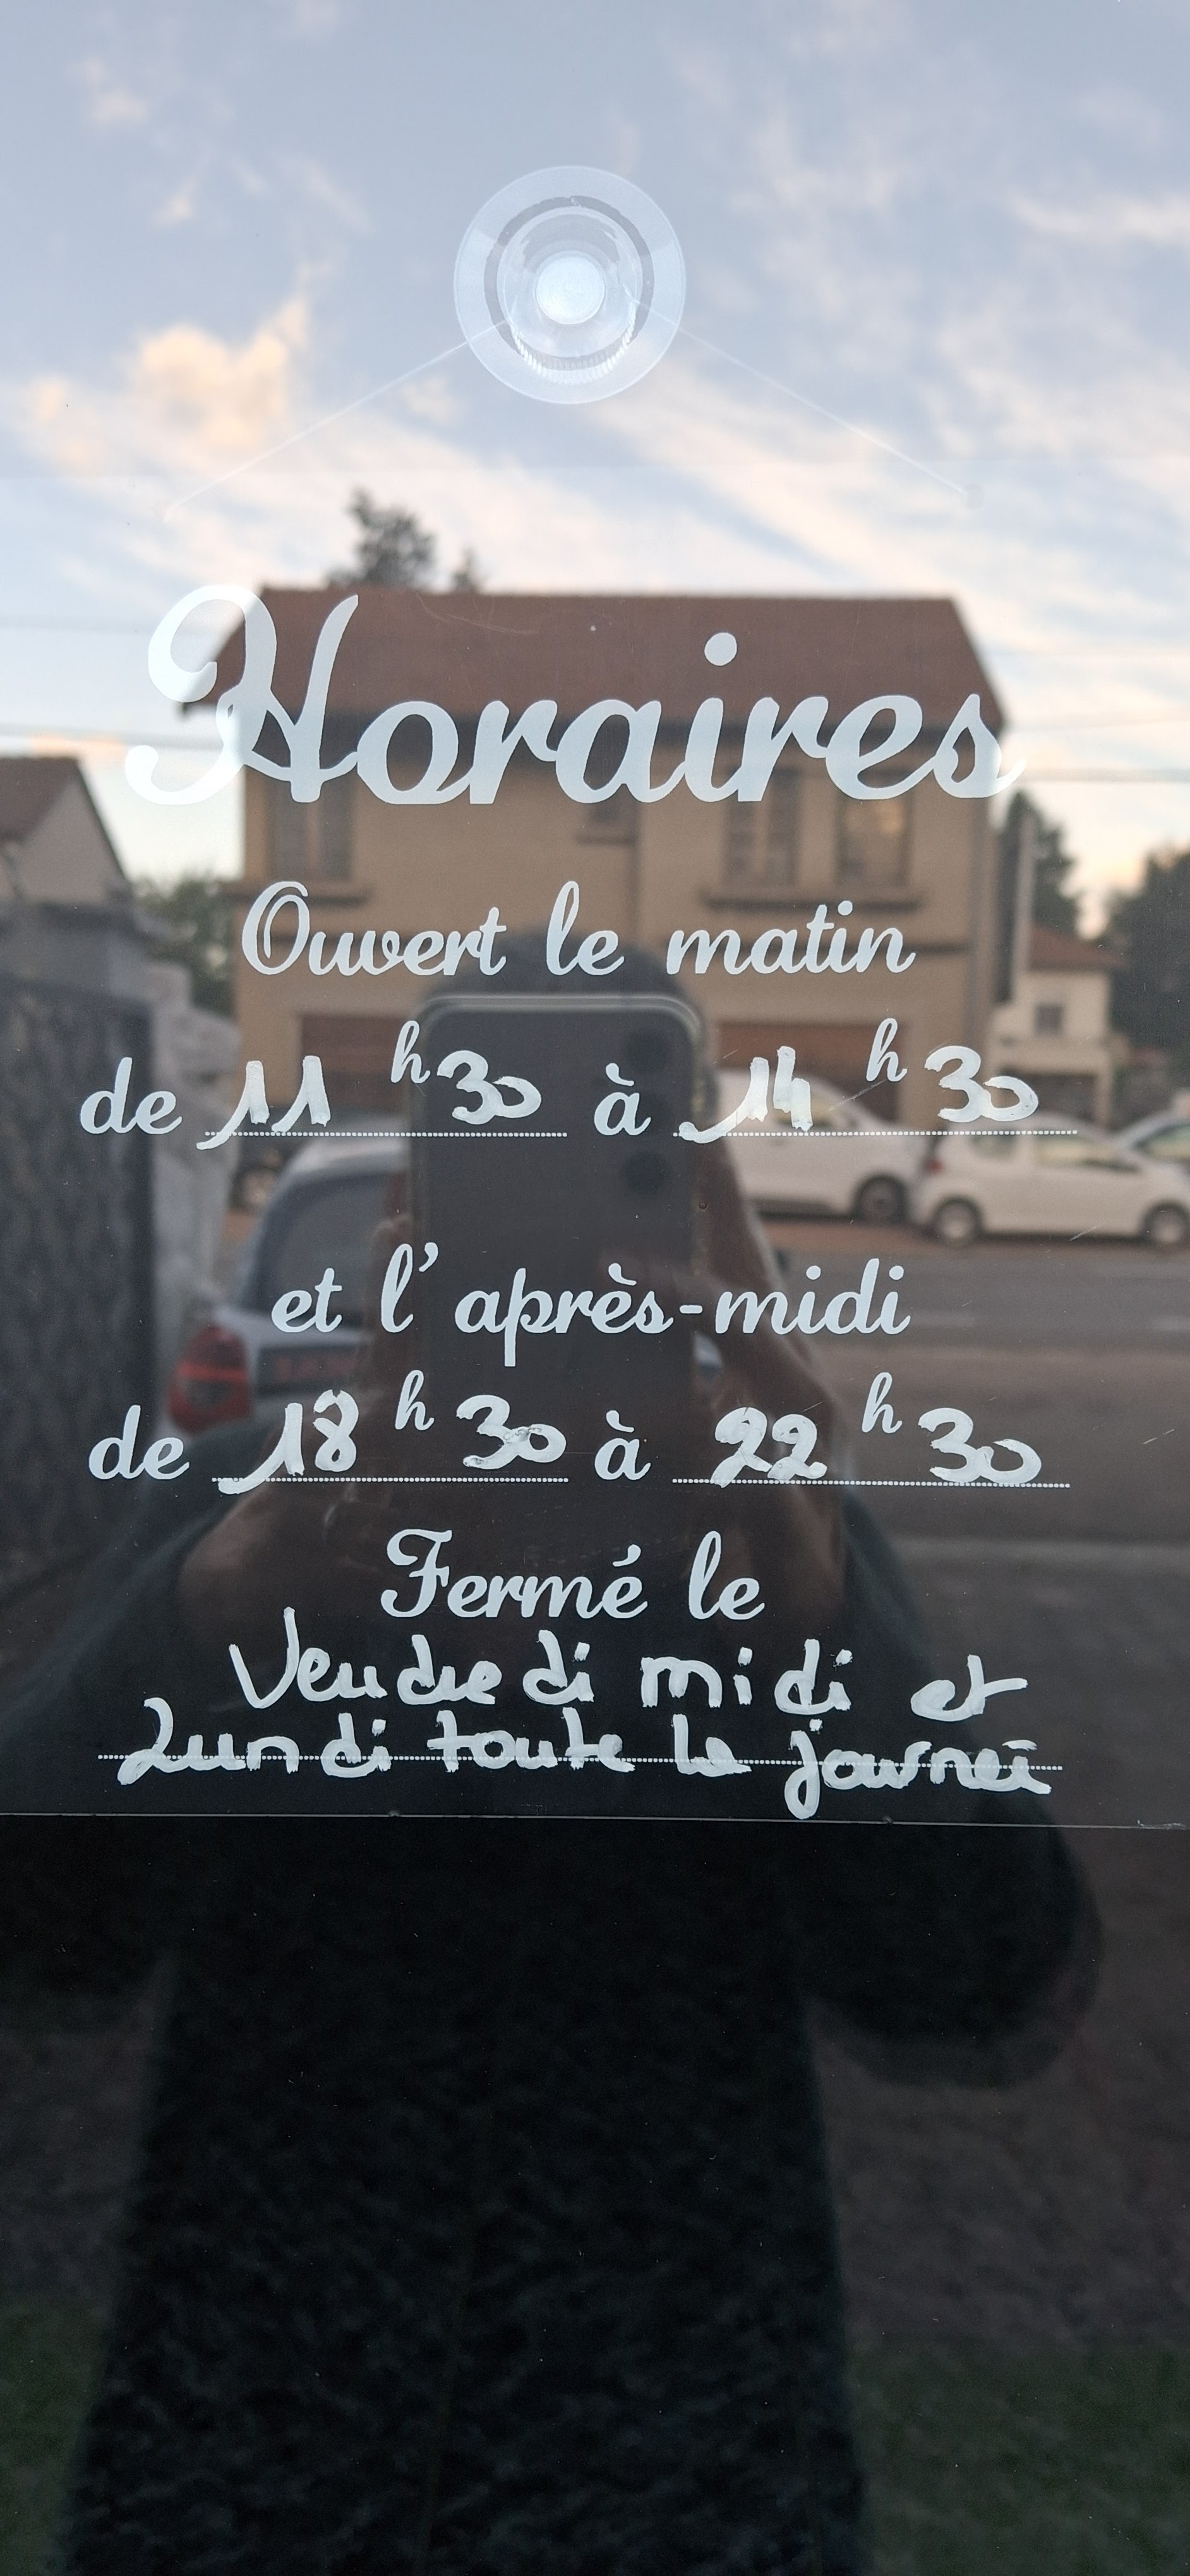 Horaires
Ouvert le matin
de 11 h 30 à 14 h 30
et l'après-midi
de 18 h 30 à 22 h 30
Fermé le
Vendredi midi et
Lundi toute la journée